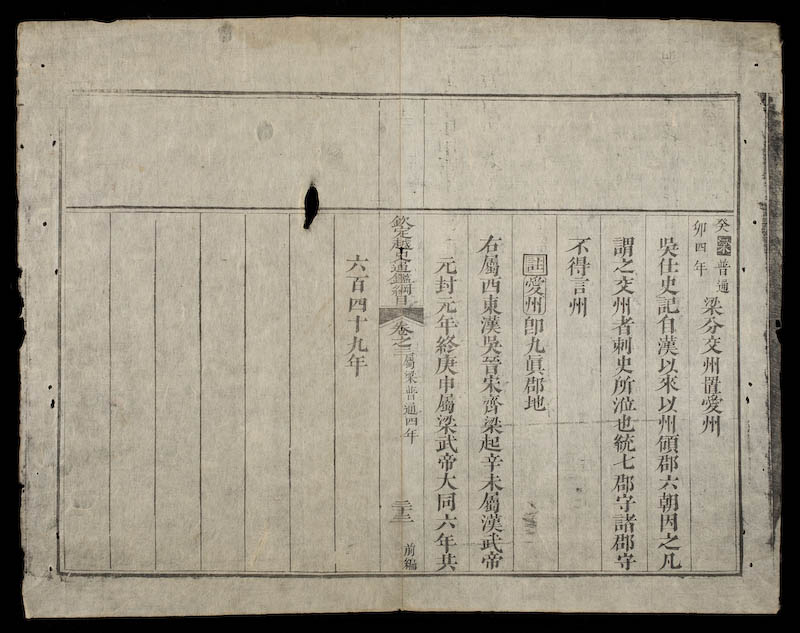 癸卯梁普通四年 梁分交州置愛州
吳仕史記自漢以來以州領郡六朝因之凡
謂之交州者刺史所涖也統七郡守諸郡守
不得言州
註愛州卽九眞郡地
右屬西東漢吳晉宋齊梁起辛未屬漢武帝
元封元年終庚申屬梁武帝大同六年共
欽定越史通鑑綱目 卷之三 屬梁普通四年 二十三 前編
六百四十九年